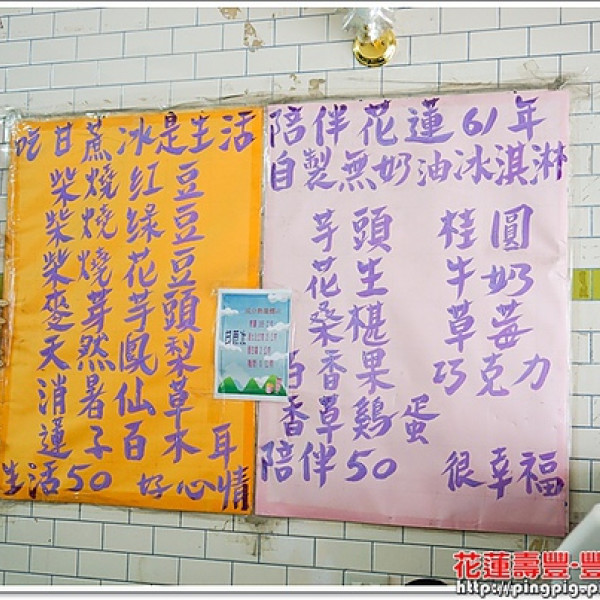 吃甘蔗冰是生活
柴燒紅豆
柴燒綠豆
柴燒花豆
麥芽芋頭
天然鳳梨
消暑仙草
蓮子百木耳
生活50 好心情
陪伴花蓮61年
自製無奶油冰淇淋
芋頭 桂圓
花生 牛奶
桑椹 草莓
百香果 巧克力
香草雞蛋
陪伴50 很幸福
花蓮壽豐‧豐
http://pingpig.pi